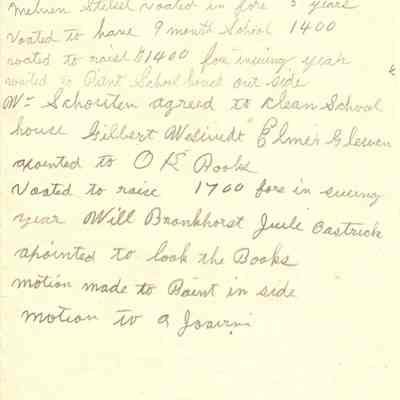 Melven Stebel voated in fore 3 years
Voated to have 9 month School 1400
voated to raist $1400 fore insuing year
voated to Paint School house out side
Wm Schouten agreed to Klean School
house Gilbert Elmer
apointed to O K Books
Voated to raise 1700 fore in sueing
year Will Bronkhorst Juile Oastrick
apointed to look the Books
motion made to Paint in side
motion to a